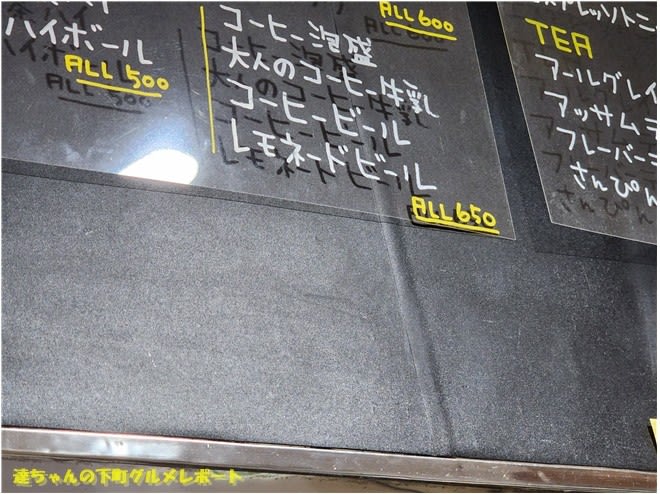 ハイボール
ALL 500
ALL 600
コーヒー泡盛
大人のコーヒー牛乳
コーヒービール
レモネードビール
ALL 650
TEA
アールグレイ
アッサムテ
フレーバーテ
さんぴん
達ちゃんの下町グルメレポート